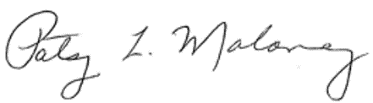 Patsy L. Maloney